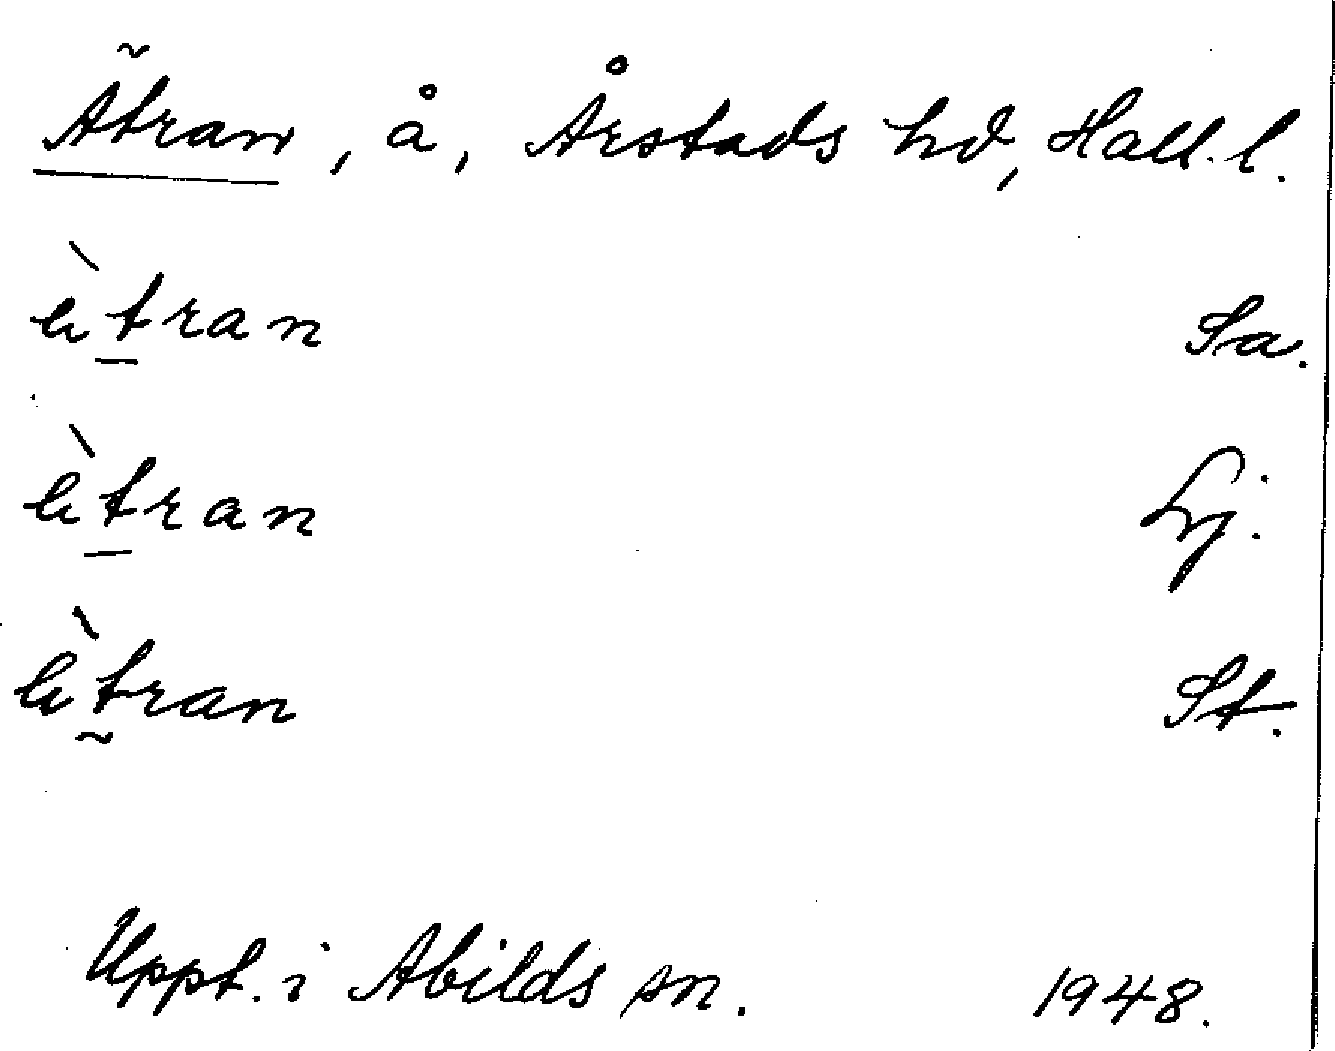 Ätran, å, Årstads hd, Hall. l.
ètran Sa.
ètran Lj.
ètran St.
Uppt. i Abilds sn. 1948.